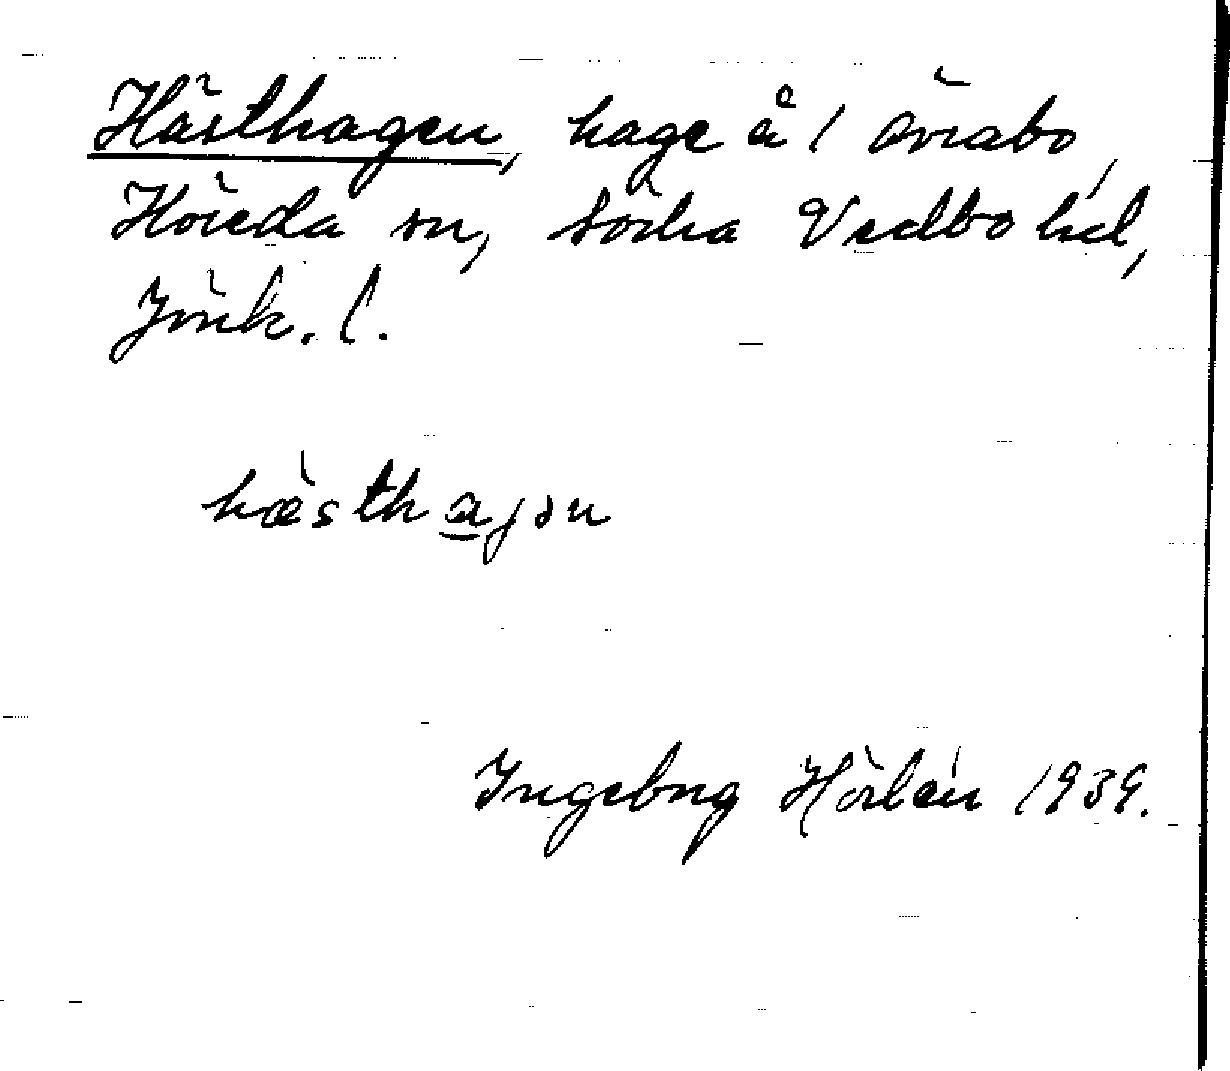 Hästhagen, hage å 1 Övrabo,
Höreda sn, Södra Vedbo hd,
Jönk. l.
hæ̀stha̲jən
Ingeborg Hörlén 1939.